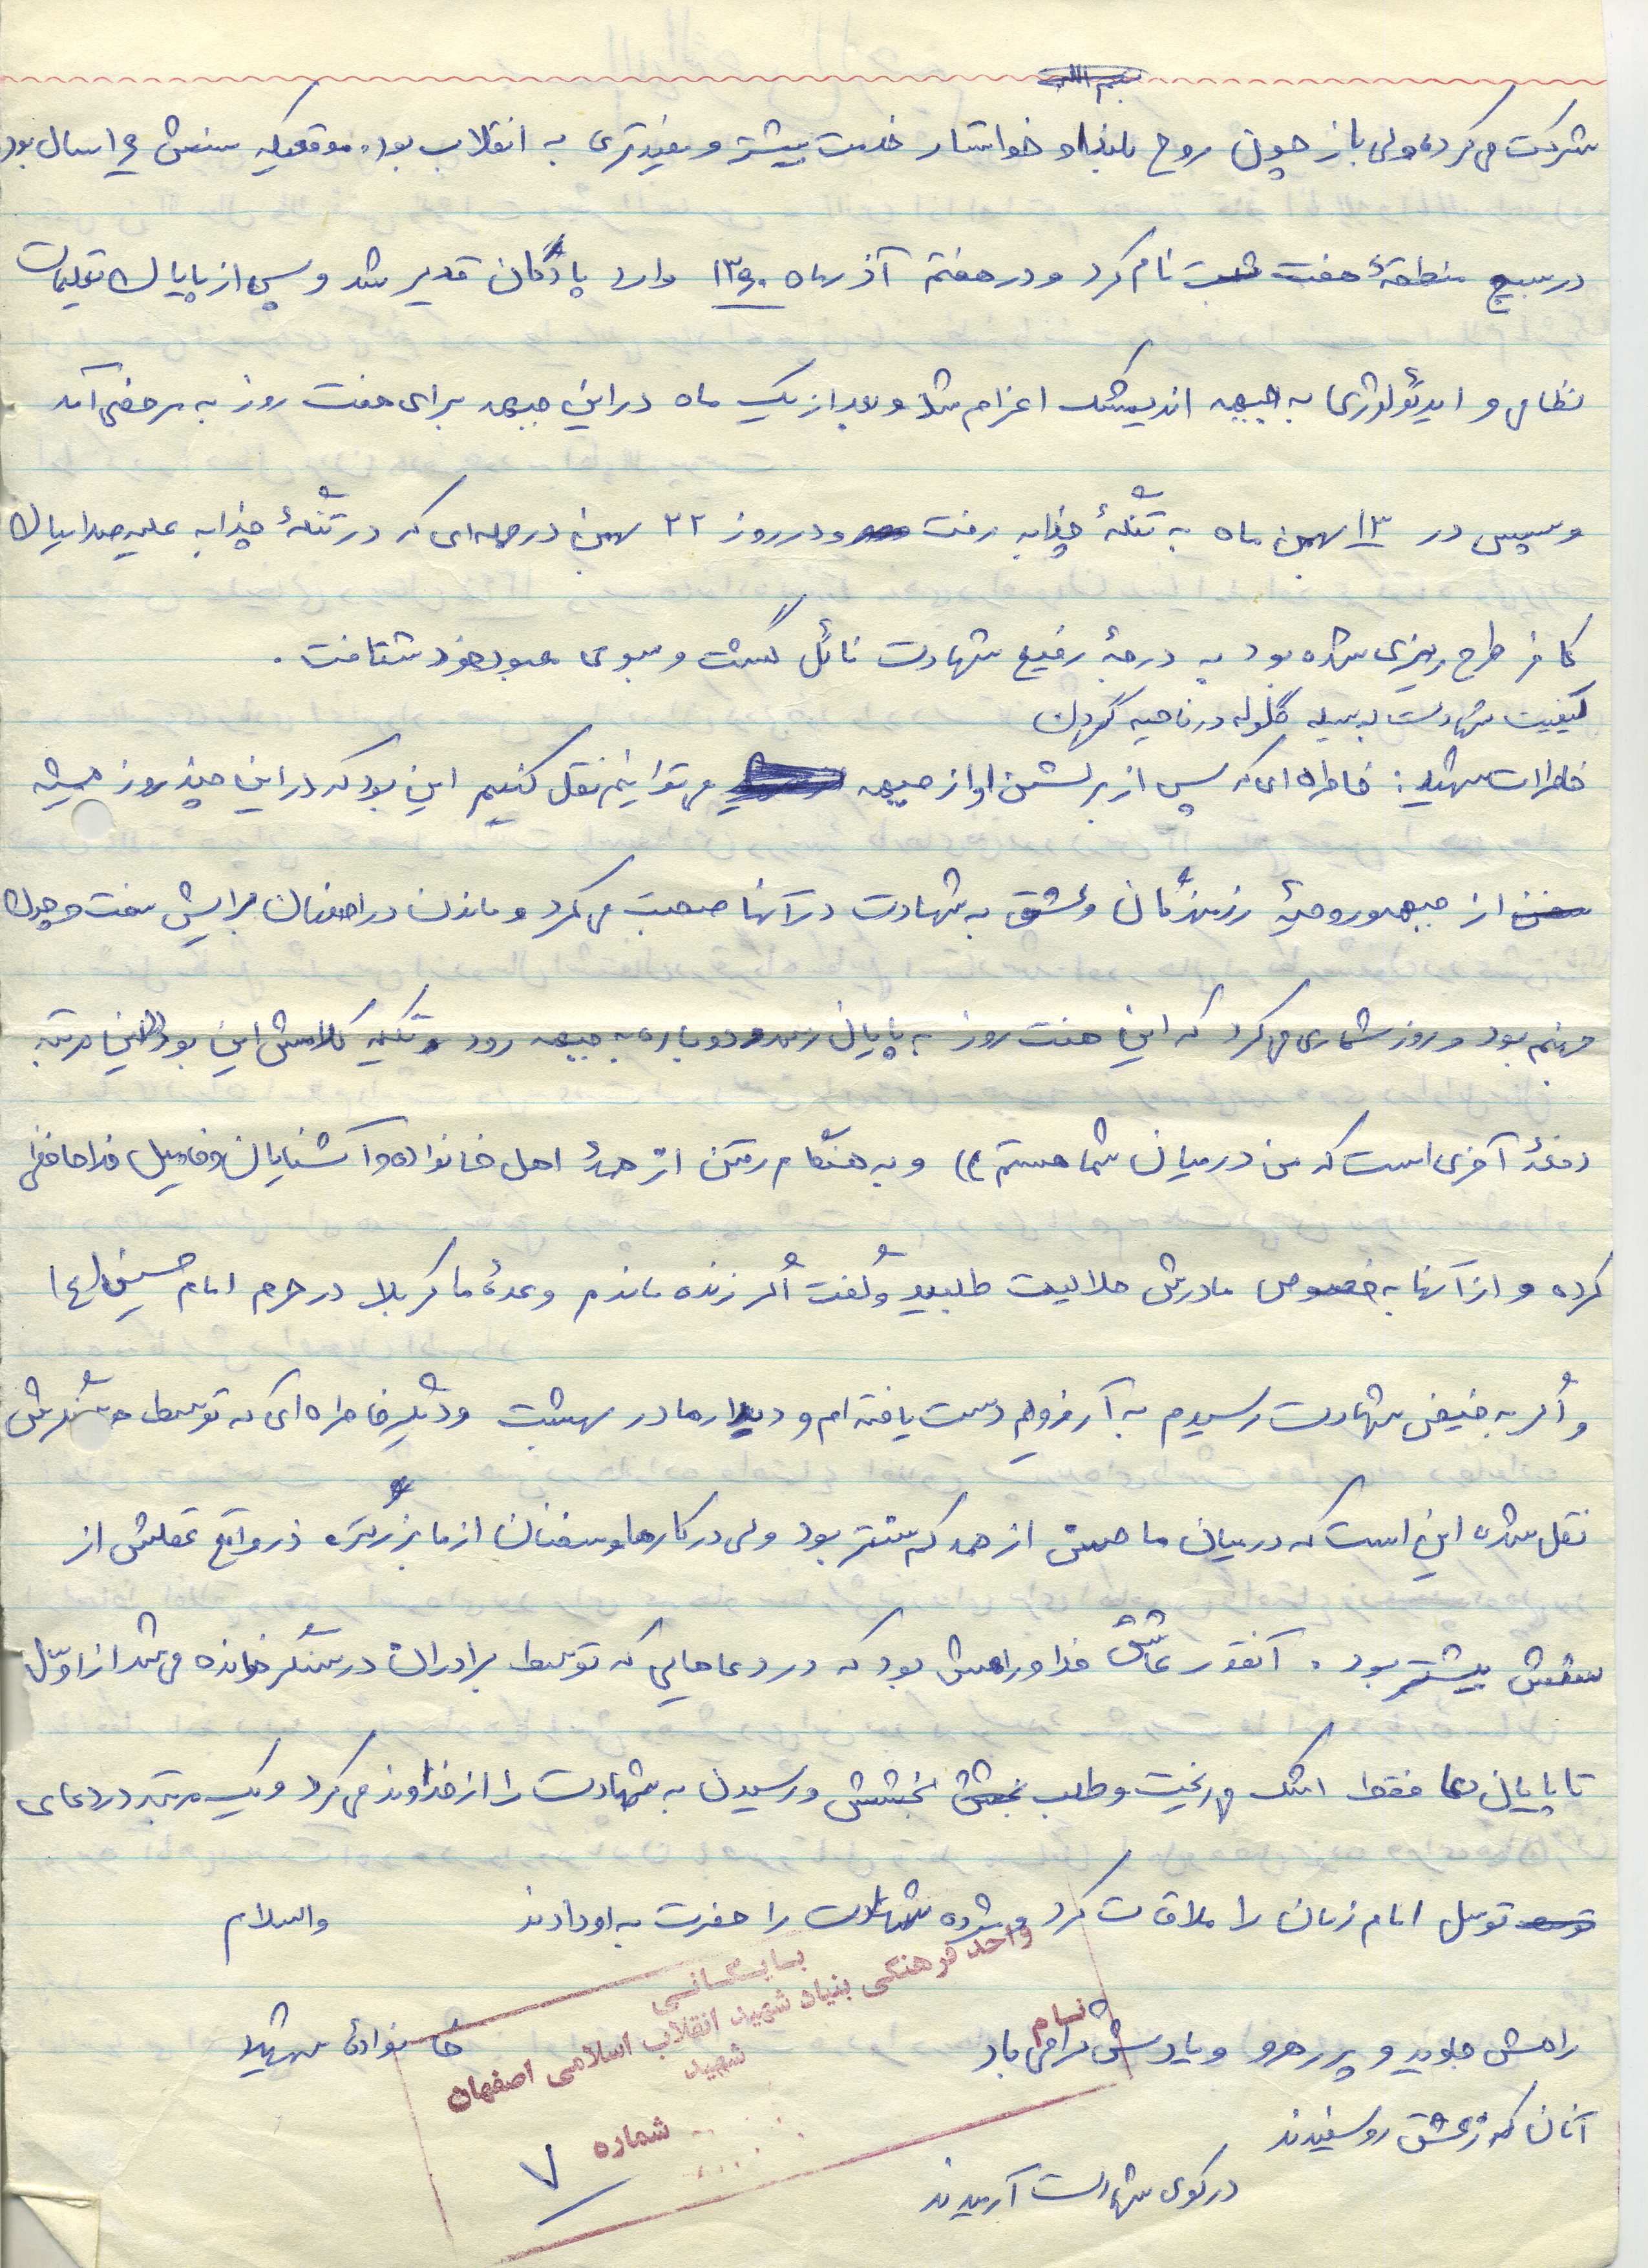 شرکت می‌کرد، ولی باز چون روح بلند او خواستار خدمت بیشتر و مفیدتری به انقلاب بود. موقعیکه سنش ۱۶ سال بود
در بسیج منطقهٔ هفت ثبت نام کرد و در هفتم آذر ماه ۱۳۶۰ وارد پادگان غدیر شد و پس از پایان تعلیمات
نظامی و ایدئولوژی به جبهه اندیمشک اعزام شد و بعد از یک ماه در این جبهه برای هفت روز به مرخصی آمد
و سپس در ۱۳ بهمن ماه به تنگهٔ چزابه رفت و در روز ۲۲ بهمن در حمله‌ای که در تنگهٔ چزابه علیه صدامیان
کافر طرح ریزی شده بود به درجهٔ رفیع شهادت نائل گشت و بسوی معبود خود شتافت.
کیفیت شهادت بوسیله گلوله در ناحیه گردن
خاطرات شهید: خاطره‌ای که پس از برگشتن او از جبهه می‌توانیم نقل کنیم این بود که در این چند روز همیشه
سخن از جبهه و روحیهٔ رزمندگان و عشق به شهادت در آنها صحبت می‌کرد و ماندن در اصفهان برایش سخت و چون
جهنم بود و روز شماری می‌کرد که این هفت روز به پایان رسد و دوباره به جبهه رود و تکیه کلامش این بود ((این مرتبه
دفعهٔ آخری است که من در میان شما هستم)) و به هنگام رفتن از همهٔ اهل خانواده و آشنایان و فامیل خداحافظی
کرده و از آنها به خصوص مادرش حلالیت طلبید و گفت اگر زنده ماندم وعدهٔ ما کربلا در حرم امام حسین (ع)
و اگر به فیض شهادت رسیدم به آرزویم دست یافته‌ام و دیدار ما در بهشت و دیگر خاطره‌ای که توسط همسنگرش
نقل شده این است که در میان ما سنش از همه کمتر بود ولی در کارها و سخنان از ما بزرگتر، در واقع عقلش از
سنش بیشتر بود. آنقدر عاشق خدا و راهش بود که در دعاهایی که توسط برادران در سنگر خوانده می‌شد از اوّل
تا پایان دعا فقط اشک می‌ریخت و طلب بخشش و رسیدن به شهادت را از خداوند می‌کرد و یک مرتبه در دعای
توسل امام زمان را ملاقات کرد و مژده شهادت را حضرت به او دادند والسلام
راهش جاوید و پر رهرو و یادش گرامی باد خانوادهٔ شهید
آنان که ز عشق رو سفیدند
در کوی شهادت آرمیدند
بایگانی
واحد فرهنگی بنیاد شهید انقلاب اسلامی اصفهان
نام شهید
شماره ۷